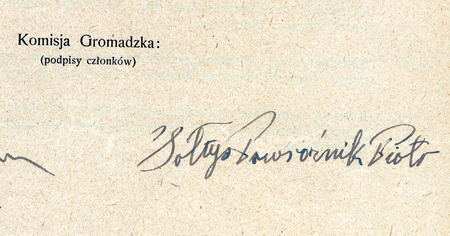 Komisja Gromadzka:
(podpisy członków)
Sołtys Powroźnik Piotr